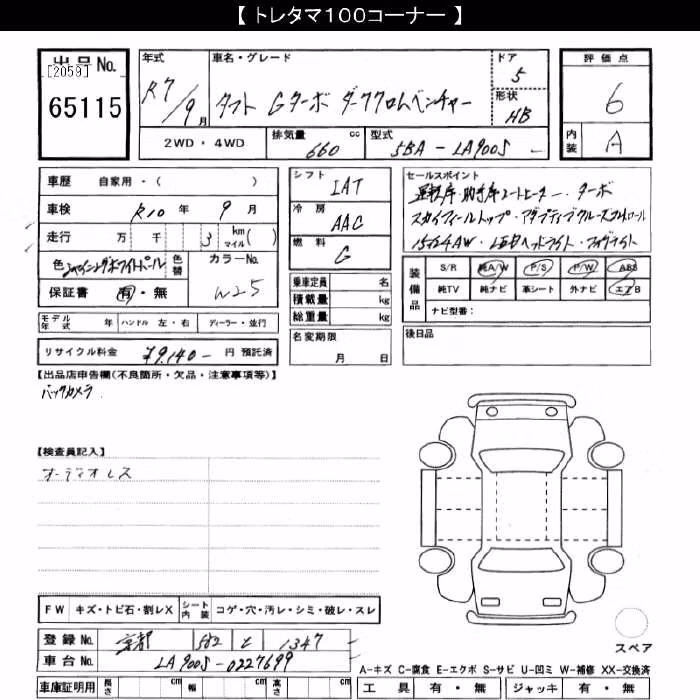 【 トレタマ100コーナー 】
出品No.
[2059]
65115
年式
R7/9月
車名・グレード
タフト Gターボ ダーククロムベンチャー
ドア
5
形状
HB
評価点
6
内装
A
2WD・4WD
排気量 660 cc
型式 5BA-LA900S
車歴 自家用・( )
車検 R10年 9月
走行 万 千 3 km マイル ( )
色 シャイニングホワイトパール
色替
カラーNo.
W25
保証書 有・無
モデル年式 年 ハンドル 左・右 ディーラー・並行
リサイクル料金 ¥9,140- 円 預託済
シフト IAT
冷房 AAC
燃料 G
乗車定員 名
積載量 kg
総重量 kg
名変期限
月 日
セールスポイント
運転席・助手席シートヒーター・ターボ
スカイフィールトップ・アダプティブクルーズコントロール
15インチAW・LEDヘッドライト・フォグライト
装備品
S/R 純A/W P/S P/W ABS
純TV 純ナビ 革シート 外ナビ エアB
ナビ型番:
後日品
【出品店申告欄(不良箇所・欠品・注意事項等)】
バックカメラ
【検査員記入】
オーデイオレス
FW キズ・トビ石・割レX シート内装 コゲ・穴・汚レ・シミ・破レ・スレ
登録No. 京都 582 と 1347
車台No. LA900S-0227699
車庫証明用 長さ cm 幅 cm 高さ cm
スペア
A-キズ C-腐食 E-エクボ S-サビ U-凹ミ W-補修 XX-交換済
工具 有・無 ジャッキ 有・無